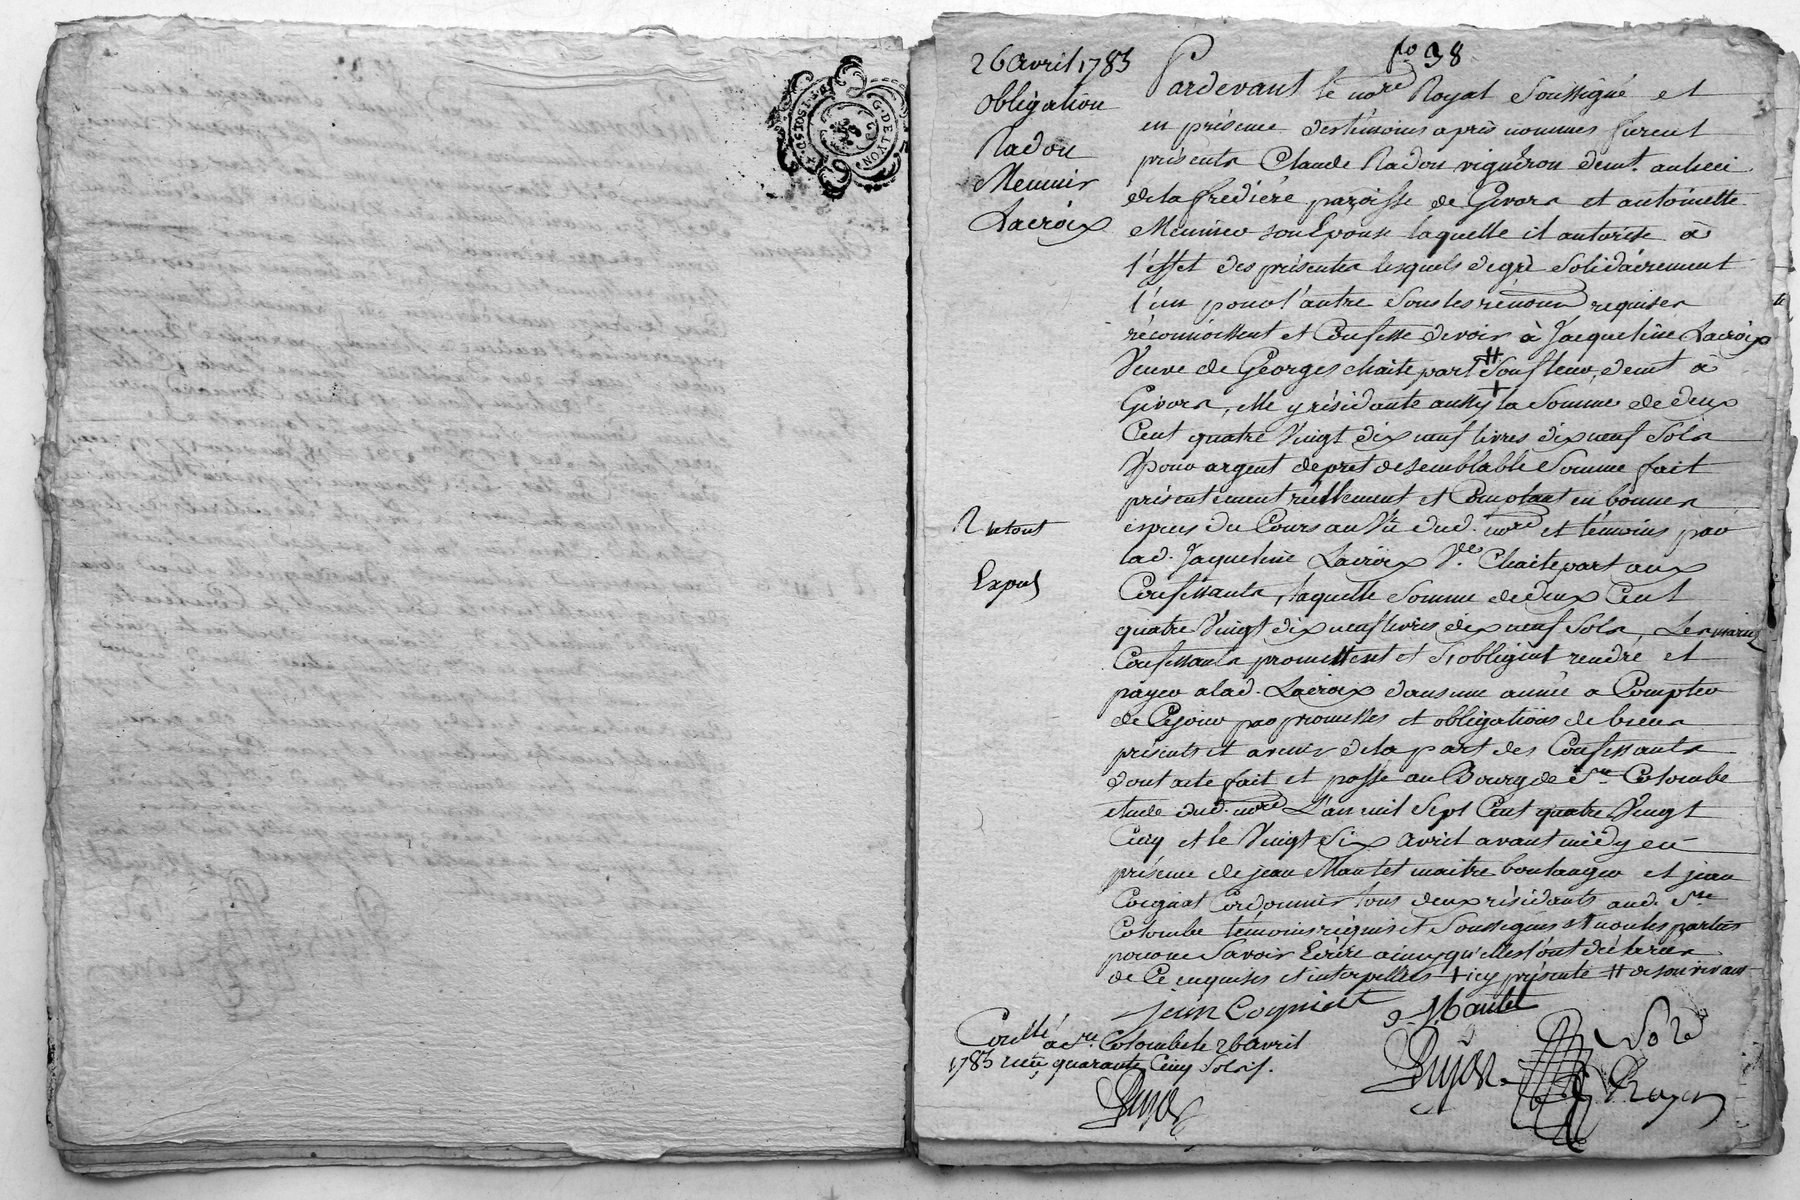 G. DE LYON
fo 38
26 avril 1785
obligation
Radou
Meunier
Lacroix
Pardevant le nore Royal Soussigné et
en présence des témoins après nommés furent
présents Claude Radou vigneron demt. au lieu
de la frediere paroisse de Givors et antoinette
Meunier son Epouse laquelle il autorise à
l'effet des présentes lesquels de gré Solidairement
l'un pour l'autre Sous les rénon requises
réconnoissent et Confesse devoir à Jacqueline Lacroix
Veuve de Georges chaitepart # Soufleur demt à
Givors, elle y résidante aussy + la Somme de deux
Cent quatre Vingt dix neuf livres dix neuf Sols
pour argent de pret de semblable Somme fait
présentement réellement et Comptant en bonnes
espèces du Cours au Vû dud. nore et témoins par
lad. Jaqueline Lacroix Ve. Chaitepart aux
Confessants, laquelle Somme de deux Cent
quatre Vingt dix neuf livres dix neuf Sols, Les mariés
Confessants promettent et S'obligent rendre et
payer a lad. Lacroix dans une année a Compter
de Cejour par promesses et obligations de biens
présents et avenir de la part des Confessants
dont acte fait et passé au Bourg de Ste Colombe
étude dud. nore L'an mil Sept Cent quatre Vingt
Cinq et le Vingt Six avril avant midy en
présence de jean Mantet maitre boulanger et jean
Coignat Cordonnier tous deux résidants aud. Ste
Colombe témoins réquis et Soussignés et non les parties
pour ne Savoir Ecrire ainsy qu'elles l'ont déclarées
de Ce enquises et interpellées + icy présente # de son vivant
Expend
jean Cogniat
Mantet
Coullé à Ste Colombe le 26 avril
1785 reçu quarante Cinq Sols
Dujon
Dujon
Nore
Royal